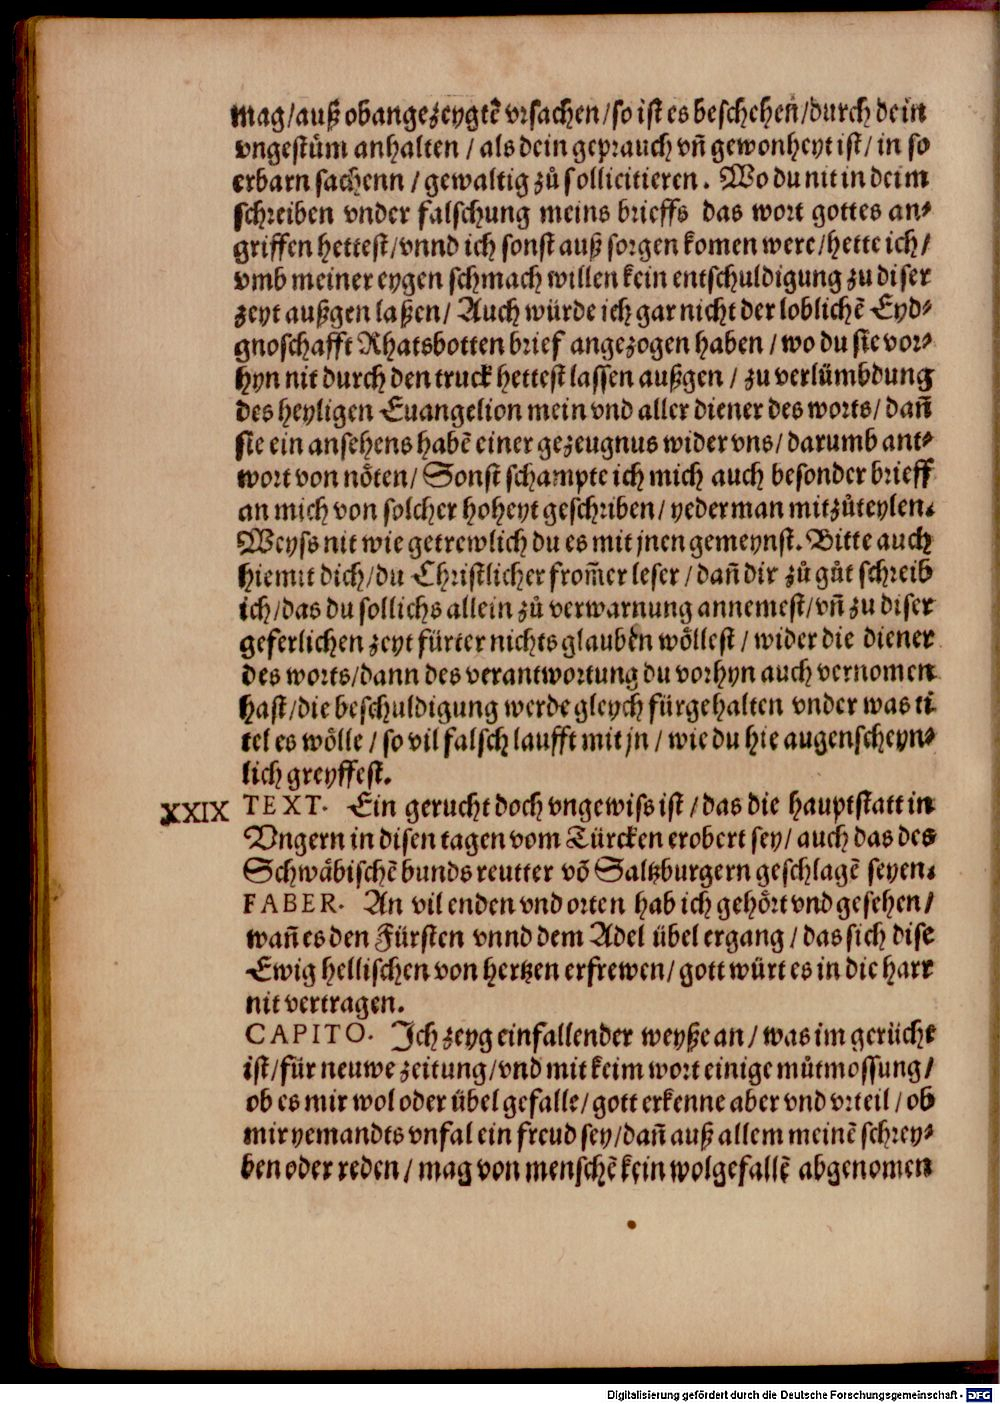 mag/auß obangezeygtē vrsachen/so ist es beschehen/durch dein
vngestüm anhalten / als dein geprauch vñ gewonheyt ist/ in so
erbarn sachenn / gewaltig zů sollicitieren. Wo du nit in deim
schreiben vnder falschung meins brieffs das wort gottes an⸗
griffen hettest/vnnd ich sonst auß sorgen komen were/hette ich/
vmb meiner eygen schmach willen kein entschuldigung zu diser
zeyt außgen laßen/ Auch würde ich gar nicht der loblichē Eyd⸗
gnoschafft Rhatsbotten brief angezogen haben / wo du sie vor⸗
hyn nit durch den truck hettest lassen außgen / zu verlümbdung
des heyligen Euangelion mein vnd aller diener des worts/ dañ
sie ein ansehens habē einer gezeugnus wider vns/ darumb ant⸗
wort von nöten/ Sonst schampte ich mich auch besonder brieff
an mich von solcher hoheyt geschriben/ yederman mitzůteylen.
Weyss nit wie getrewlich du es mit jnen gemeynst. Bitte auch
hiemit dich/du Christlicher from̄er leser / dañ dir zů gůt schreib
ich/das du sollichs allein zů verwarnung annemest/vñ zu diser
geferlichen zeyt fürter nichts glauben wöllest / wider die diener
des worts/dann des verantwortung du vorhyn auch vernomen
hast/die beschuldigung werde gleych fürgehalten vnder was ti
tel es wölle / so vil falsch laufft mit jn / wie du hie augenscheyn⸗
lich greyffest.
XXIX TEXT. Ein gerucht doch vngewiss ist / das die hauptstatt in
Vngern in disen tagen vom Türcken erobert sey/ auch das des
Schwäbischē bunds reutter vō Saltzburgern geschlagē seyen.
FABER. An vil enden vnd orten hab ich gehört vnd gesehen/
wañ es den Fürsten vnnd dem Adel übel ergang / das sich dise
Ewig hellischen von hertzen erfrewen/ gott würt es in die harr
nit vertragen.
CAPITO. Ich zeyg einfallender weyße an/ was im gerücht
ist/für neuwe zeitung/vnd mit keim wort einige mütmossung/
ob es mir wol oder übel gefalle/ gott erkenne aber vnd vrteil / ob
mir yemandts vnfal ein freud sey/dañ auß allem meinē schrey⸗
ben oder reden/ mag von menschē kein wolgefallē abgenomen
Digitalisierung gefördert durch die Deutsche Forschungsgemeinschaft - DFG